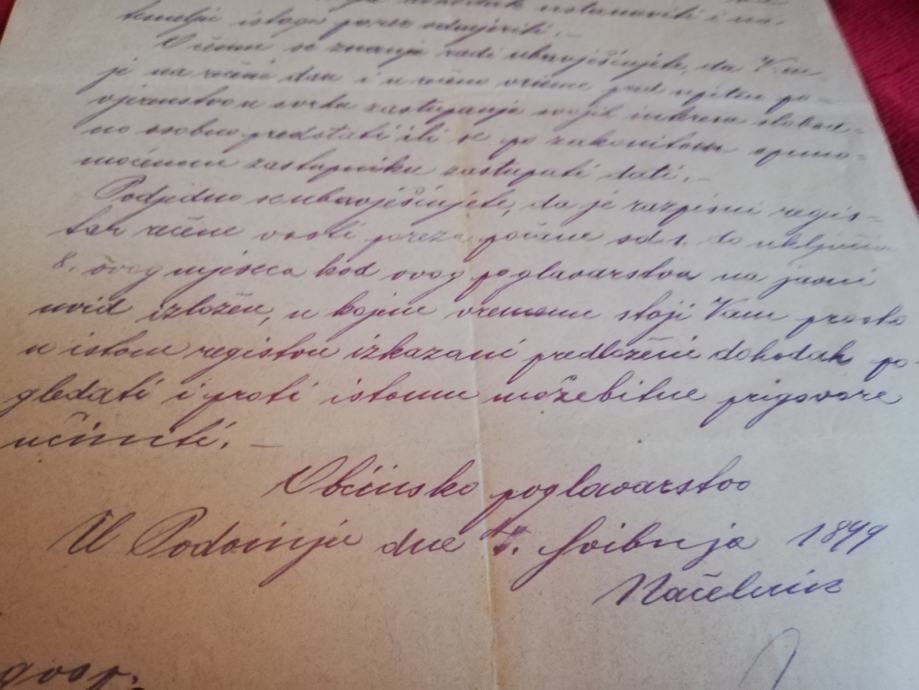 dohodak ustanoviti i na
temelju istoga porez odmjeriti. –
O čemu se znanja radi ubavješćujete, da Vam
je na rečeni dan i u rečeno vrieme pred upitno po-
vjerenstvo u svrhu zastupanja svojih interesa slobod-
no osobno predstati ili se po zakonitom opuno-
moćenom zastupniku zastupati dati. –
Podjedno se ubavješćujete, da je razpisni regis-
tar rečene vrsti poreza počam od 1. do uključivo
8. ovog mjeseca kod ovog poglavarstva na javni
uvid izložen, u kojem vremenu stoji Vam prosto
u istom registru izkazani predloženi dohodak po
gledati i proti istomu možebitne prigovore
učiniti. –
Obćinsko poglavarstvo
U dne Svibnja 1899
Načelnik
gosp.